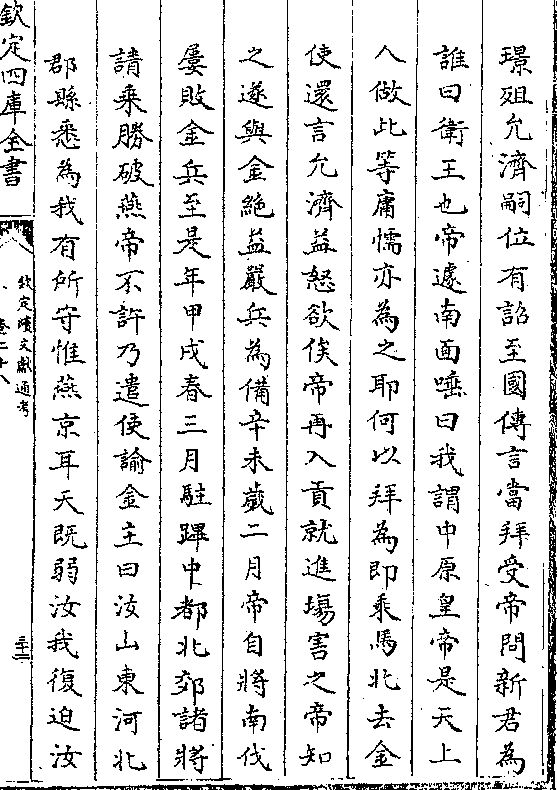 璟殂允濟嗣位有詔至國傳言當拜受帝問新君為
誰曰衛王也帝遽南面唾曰我謂中原皇帝是天上
人做此等庸懦亦為之耶何以拜為即乗馬北去金
使還言允濟益怒欲俟帝再入貢就進塲害之帝知
之遂與金絶益嚴兵為備辛未歲二月帝自將南伐
屢敗金兵至是年甲戌春三月駐蹕中都北郊諸將
請乗勝破燕帝不許乃遣使諭金主曰汝山東河北
郡縣悉為我有所守惟燕京耳天既弱汝我復迫汝
欽定四庫全書
欽定續文獻通考
卷二十八
三十二